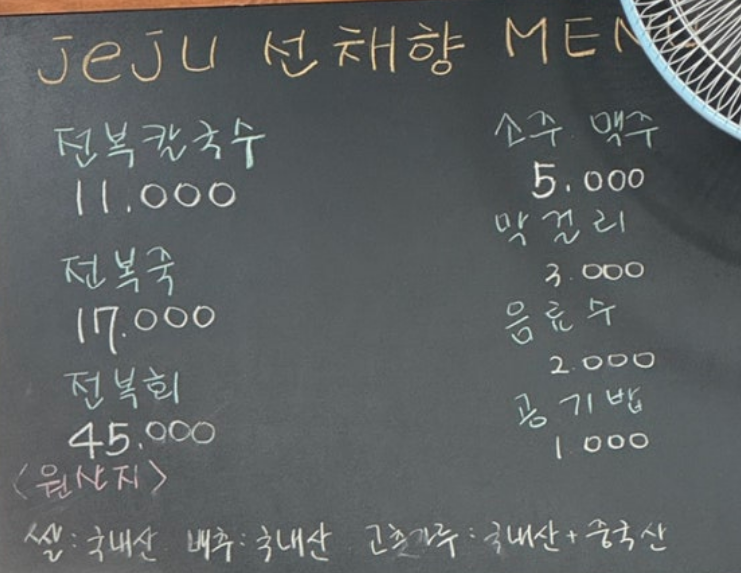 JeJu 선채향 MENU
전복칼국수
11.000
전복죽
17.000
전복회
45.000
소주. 맥주
5.000
막걸리
3.000
음료수
2.000
공기밥
1.000
<원산지>
쌀:국내산 배추:국내산 고춧가루:국내산+중국산